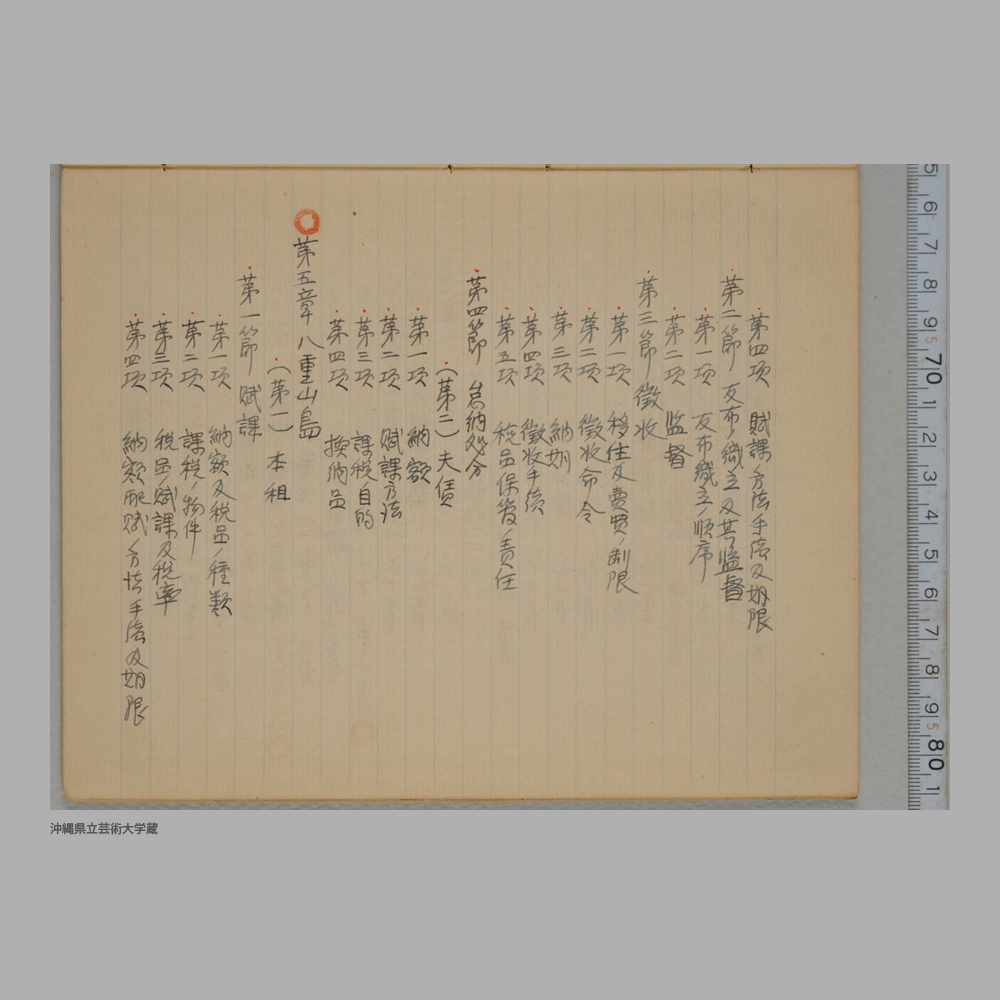 第四項 賦課ノ方法手続及期限
第二節 反布ノ織立及其監督
第一項 反布織立ノ順序
第二項 監督
第三節 徴収
第一項 移住及売買ノ制限
第二項 徴收命令
第三項 納期
第四項 徴收手続
第五項 税品保管ノ責任
第四節 怠納処分
(第二) 夫賃
第一項 納額
第二項 賦課方法
第三項 課税目的
第四項 換納品
第五章 八重山島
(第一) 本租
第一節 賦課
第一項 納額及税品ノ種類
第二項 課税ノ物件
第三項 税品ノ賦課及税率
第四項 納額配賦ノ方法手続及期限
5 6 7 8 9 5 70 1 2 3 4 5 6 7 8 9 5 80 1
沖縄県立芸術大学蔵